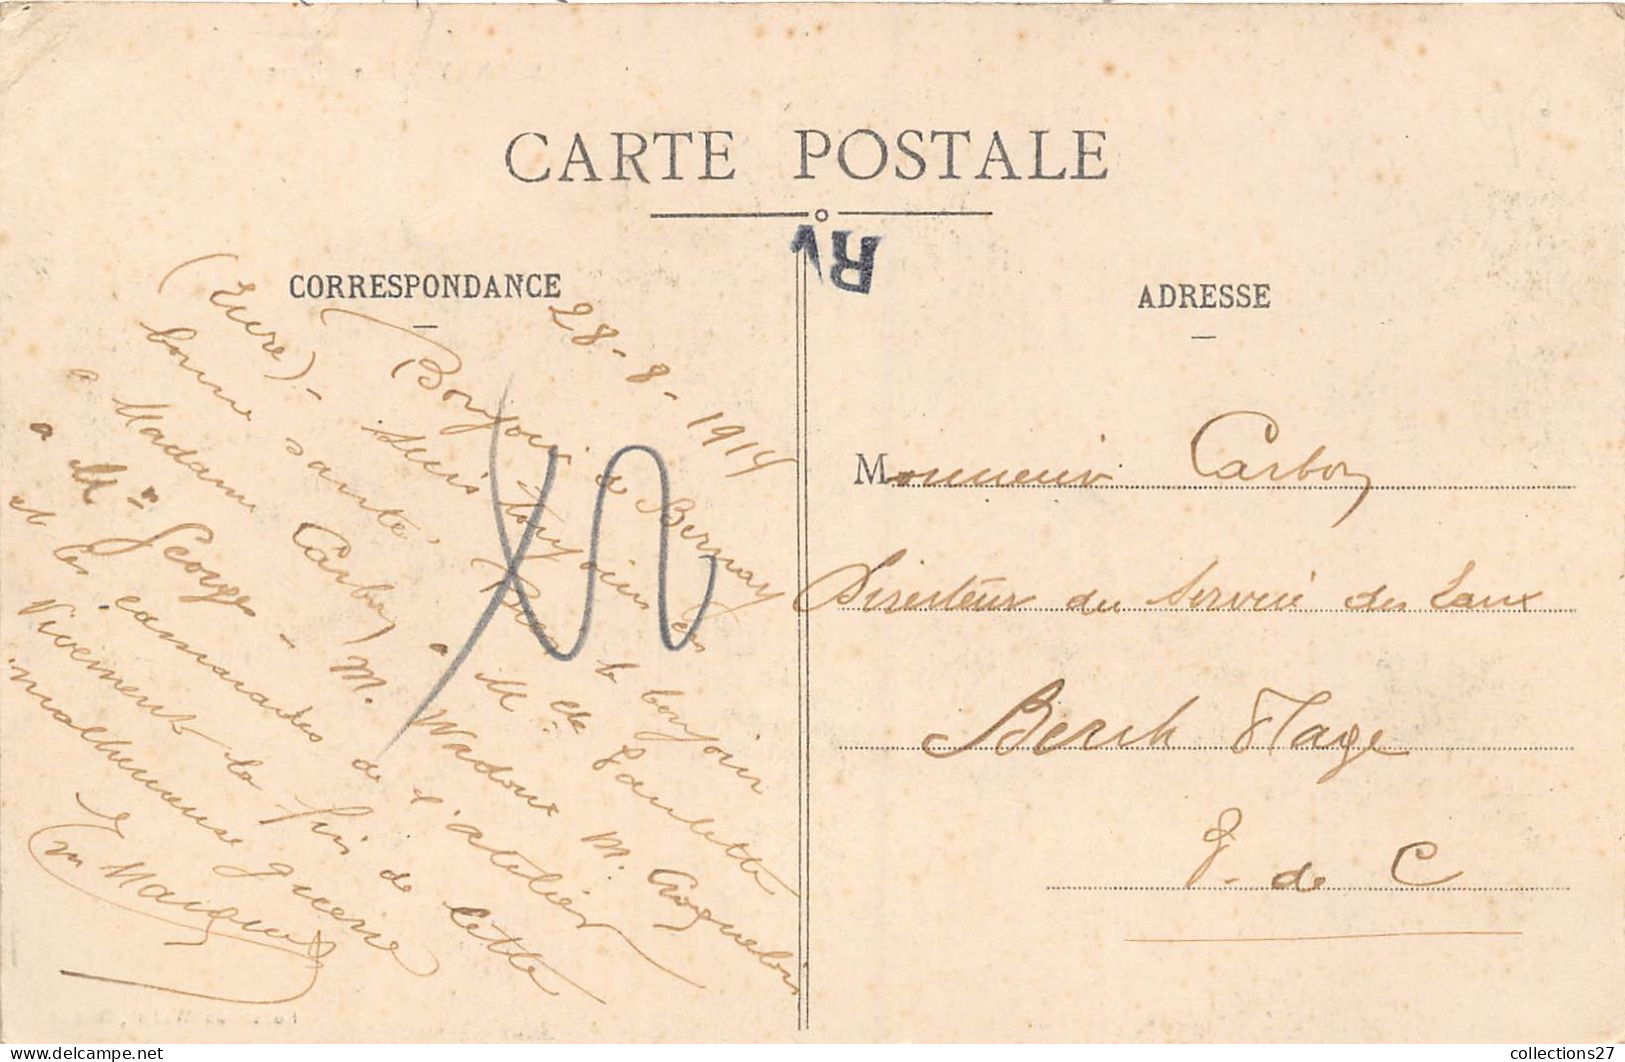 CARTE POSTALE
CORRESPONDANCE
ADRESSE
28-8-1914
Bonjour de Bernay
(Eure) - suis toujours en
bonne santé. Bien le bonjour
a Madame Carbon a Mlle Paulette
a Mr George - M. Wadoux M. Coquelin
et les camarades de l'atelier
Vivement la fin de cette
malheureuse guerre
Monsieur Carbon
Directeur du Service des Eaux
Berck Plage
P. de C
collections27